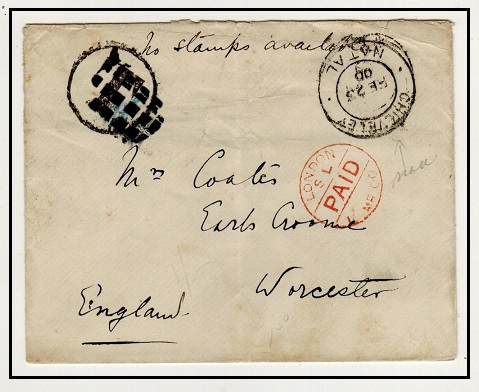 No stamps available
CHIEVELEY NATAL
FE 23
00
Mrs Coates
LONDON
S L
PAID
MR 00
Earls Croome
Worcester
England